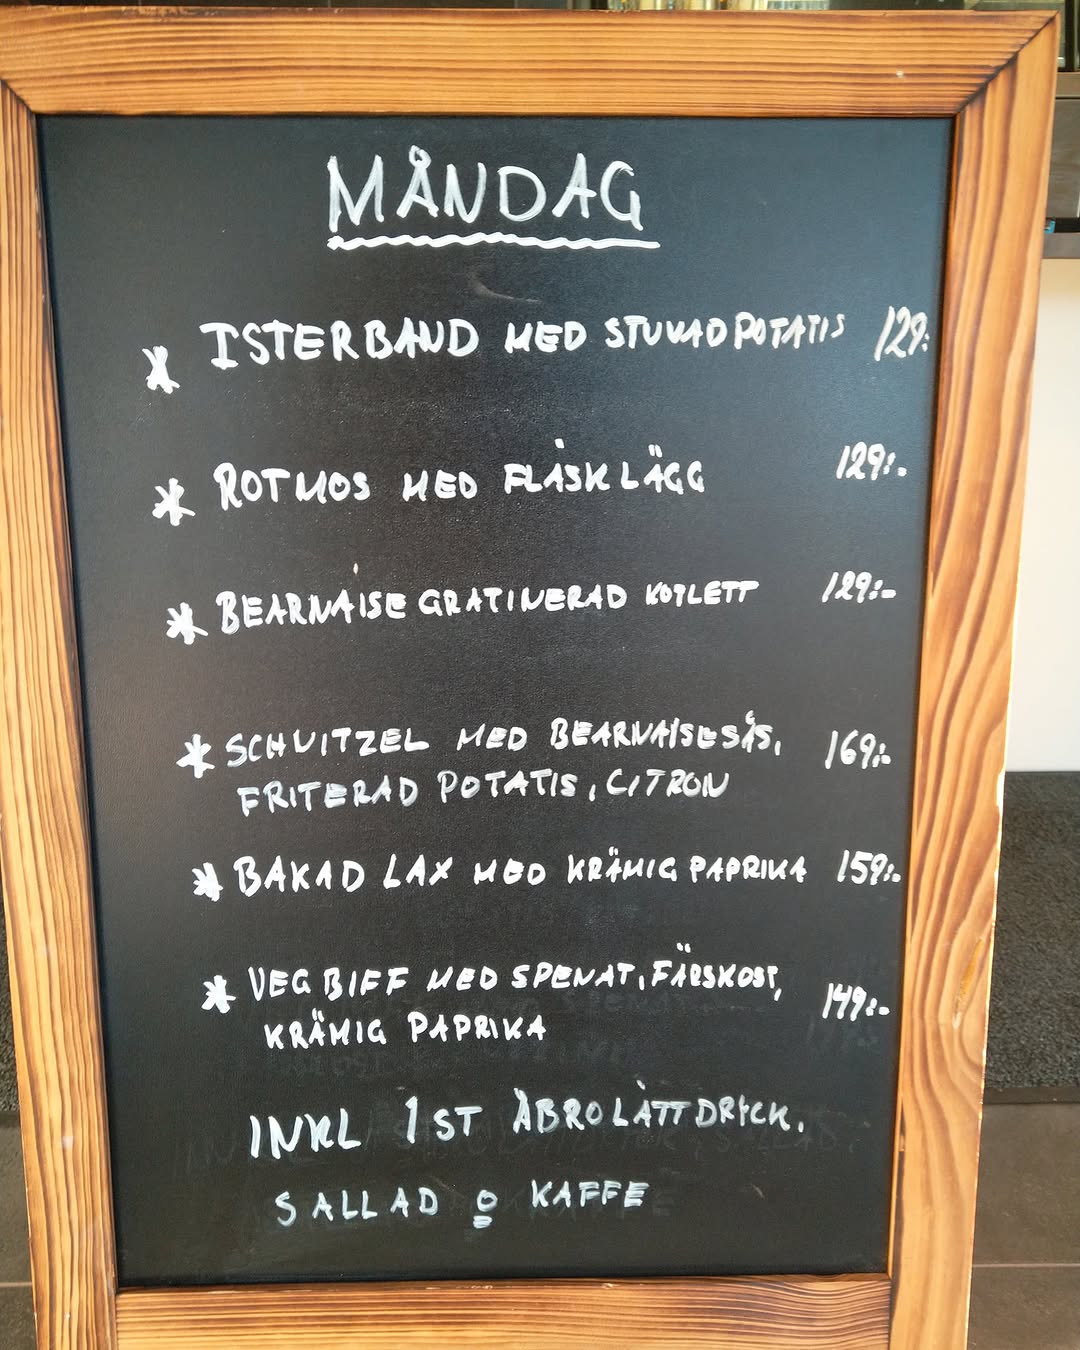 MÅNDAG
* ISTERBAND MED STUVAD POTATIS 129:-
* ROTMOS MED FLÄSKLÄGG 129:-
* BEARNAISE GRATINERAD KOTLETT 129:-
* SCHNITZEL MED BEARNAISESÅS, 169:-
FRITERAD POTATIS, CITRON
* BAKAD LAX MED KRÄMIG PAPRIKA 159:-
* VEG BIFF MED SPENAT, FÄRSKOST, 149:-
KRÄMIG PAPRIKA
INKL 1 ST ÅBRO LÄTTDRYCK.
SALLAD o KAFFE